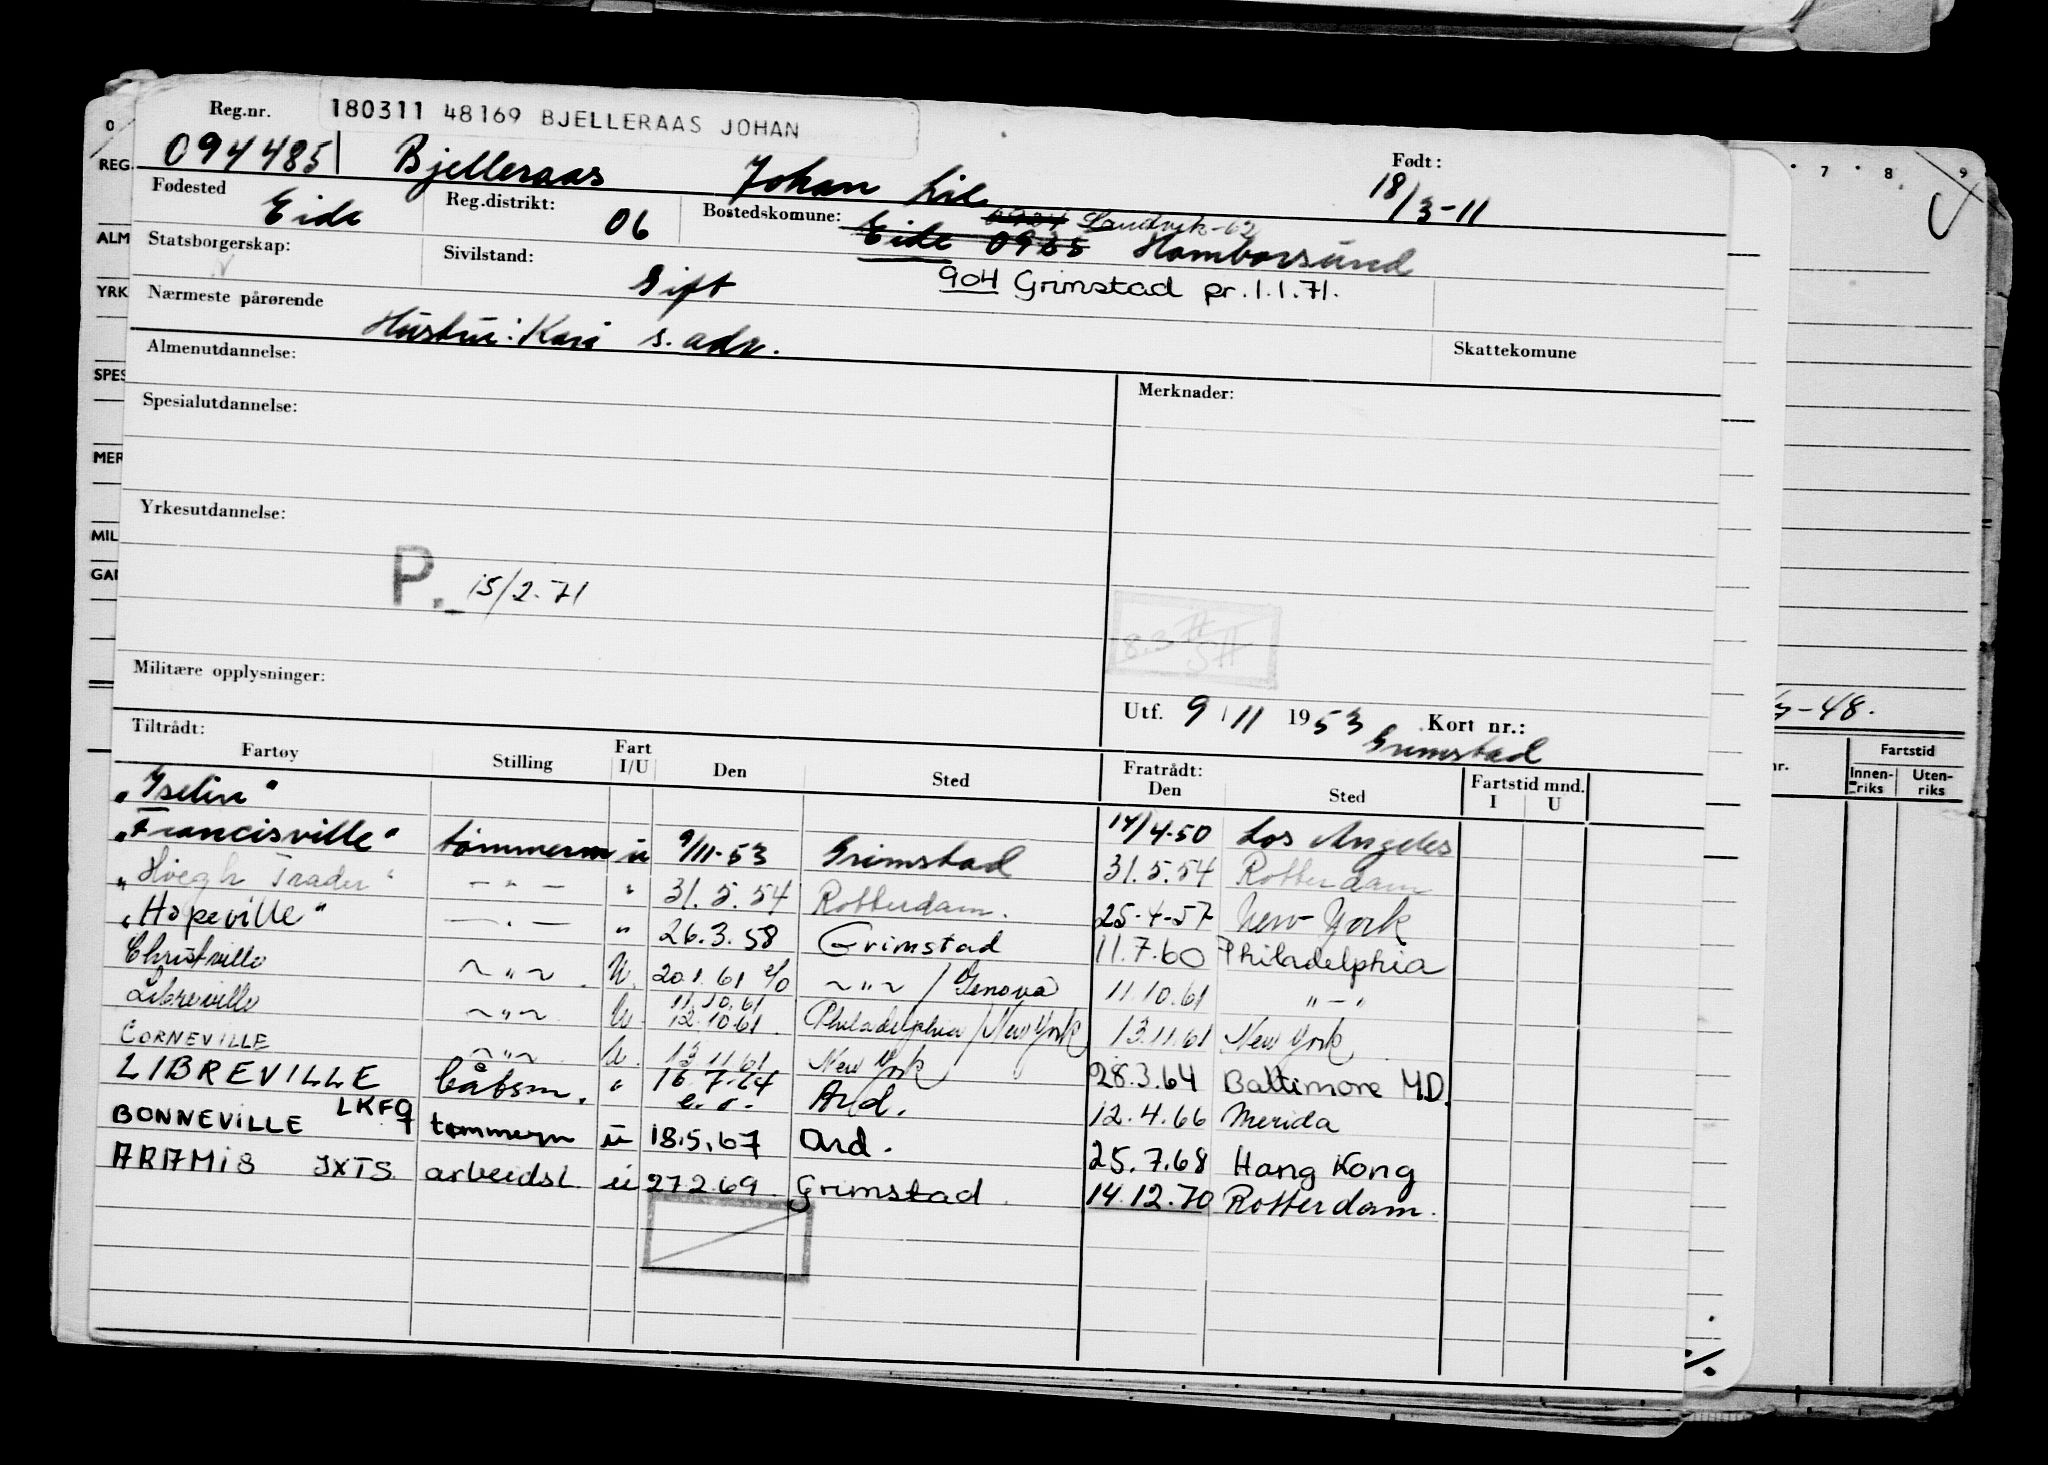 Reg.nr. 180311 48169 BJELLERAAS JOHAN
094485 Bjelleraas Johan Født: 18/3-11
Fødested Eide Reg.distrikt: 06 Bostedskommune: Eide 0925 Homborsund
Landvik-62
Statsborgerskap: N Sivilstand: Gift 904 Grimstad pr. 1.1.71.
Nærmeste pårørende Hustru: Kari s. adr.
Skattekomune
Almenutdannelse:
Merknader:
Spesialutdannelse:
Yrkesutdannelse:
P. 15/2-71
Militære opplysninger:
Utf. 9/11 1953 Kort nr.:
Grimstad
Tiltrådt: Fratrådt:
Fartøy Stilling Fart I/U Den Sted Den Sted Fartstid mnd. I U
"Iselin" 14/4-50 Los Angeles
"Francisville" tømmerm u 9/11-53 Grimstad 31.5.54 Rotterdam
"Höegh Trader" — " — " 31.5.54 Rotterdam. 25-4-57 New York
"Hopeville" — " — " 26.3.58 Grimstad 11.7.60 Philadelphia
Christville ~ " ~ U. 20.1.61 ~ " ~ / Genova 11.10.61 " — "
Libreville ~ " ~ U. 11.10.61 12.10.61 Philadelphia / New York 13.11.61 New York
CORNEVILLE ~ " ~ U. 13.11.61 New York 28.3.64 Baltimore M.D.
LIBREVILLE båtsm. " 16.7.64 e.o. Ard. 12.4.66 Merida
BONNEVILLE LKFQ tømmerm u 18.5.67 Ard. 25.7.68 Hong Kong
ARAMIS JXTS. arbeidsl. u 27.2.69 Grimstad 14.12.70 Rotterdam.
0
REG.
ALM
YRK
SPES
MER
MIL
GAR
7 8 9
-48.
nr. Fartstid
Innen-riks Uten-riks